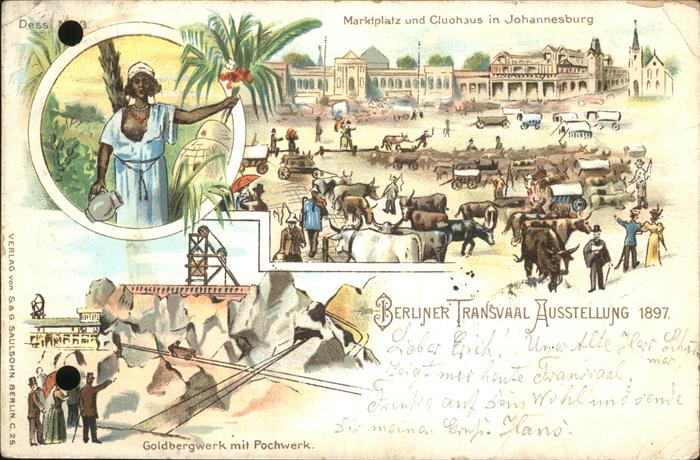 Dess. N 3.
Marktplatz und Cluohaus in Johannesburg
BERLINER TRANSVAAL AUSSTELLUNG 1897.
Lieber Erich. Unser Alte Herr
zeigt mir heute Transvaal.
Trinke auf dein Wohl und sende
Dir meinen Gruß. Hans.
Goldbergwerk mit Pochwerk.
VERLAG von S. & G. SAULSOHN. BERLIN, C. 25.